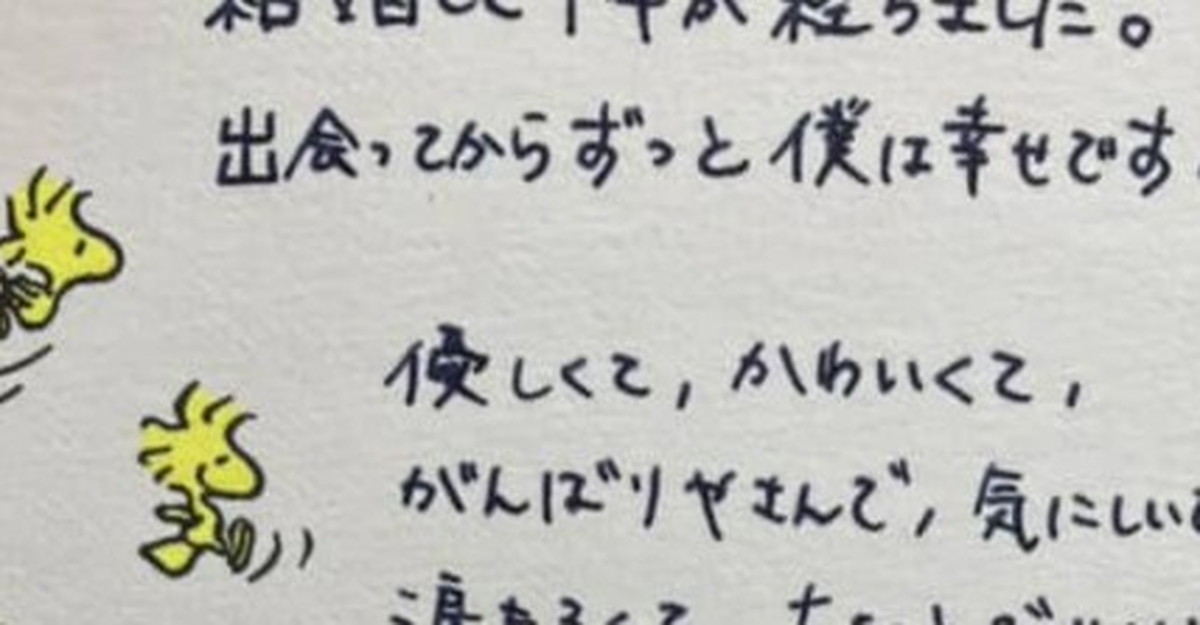 結婚して1年が経ちました。
出会ってからずっと僕は幸せです
優しくて,かわいくて,
がんばりやさんで,気にしい
涙もろくて